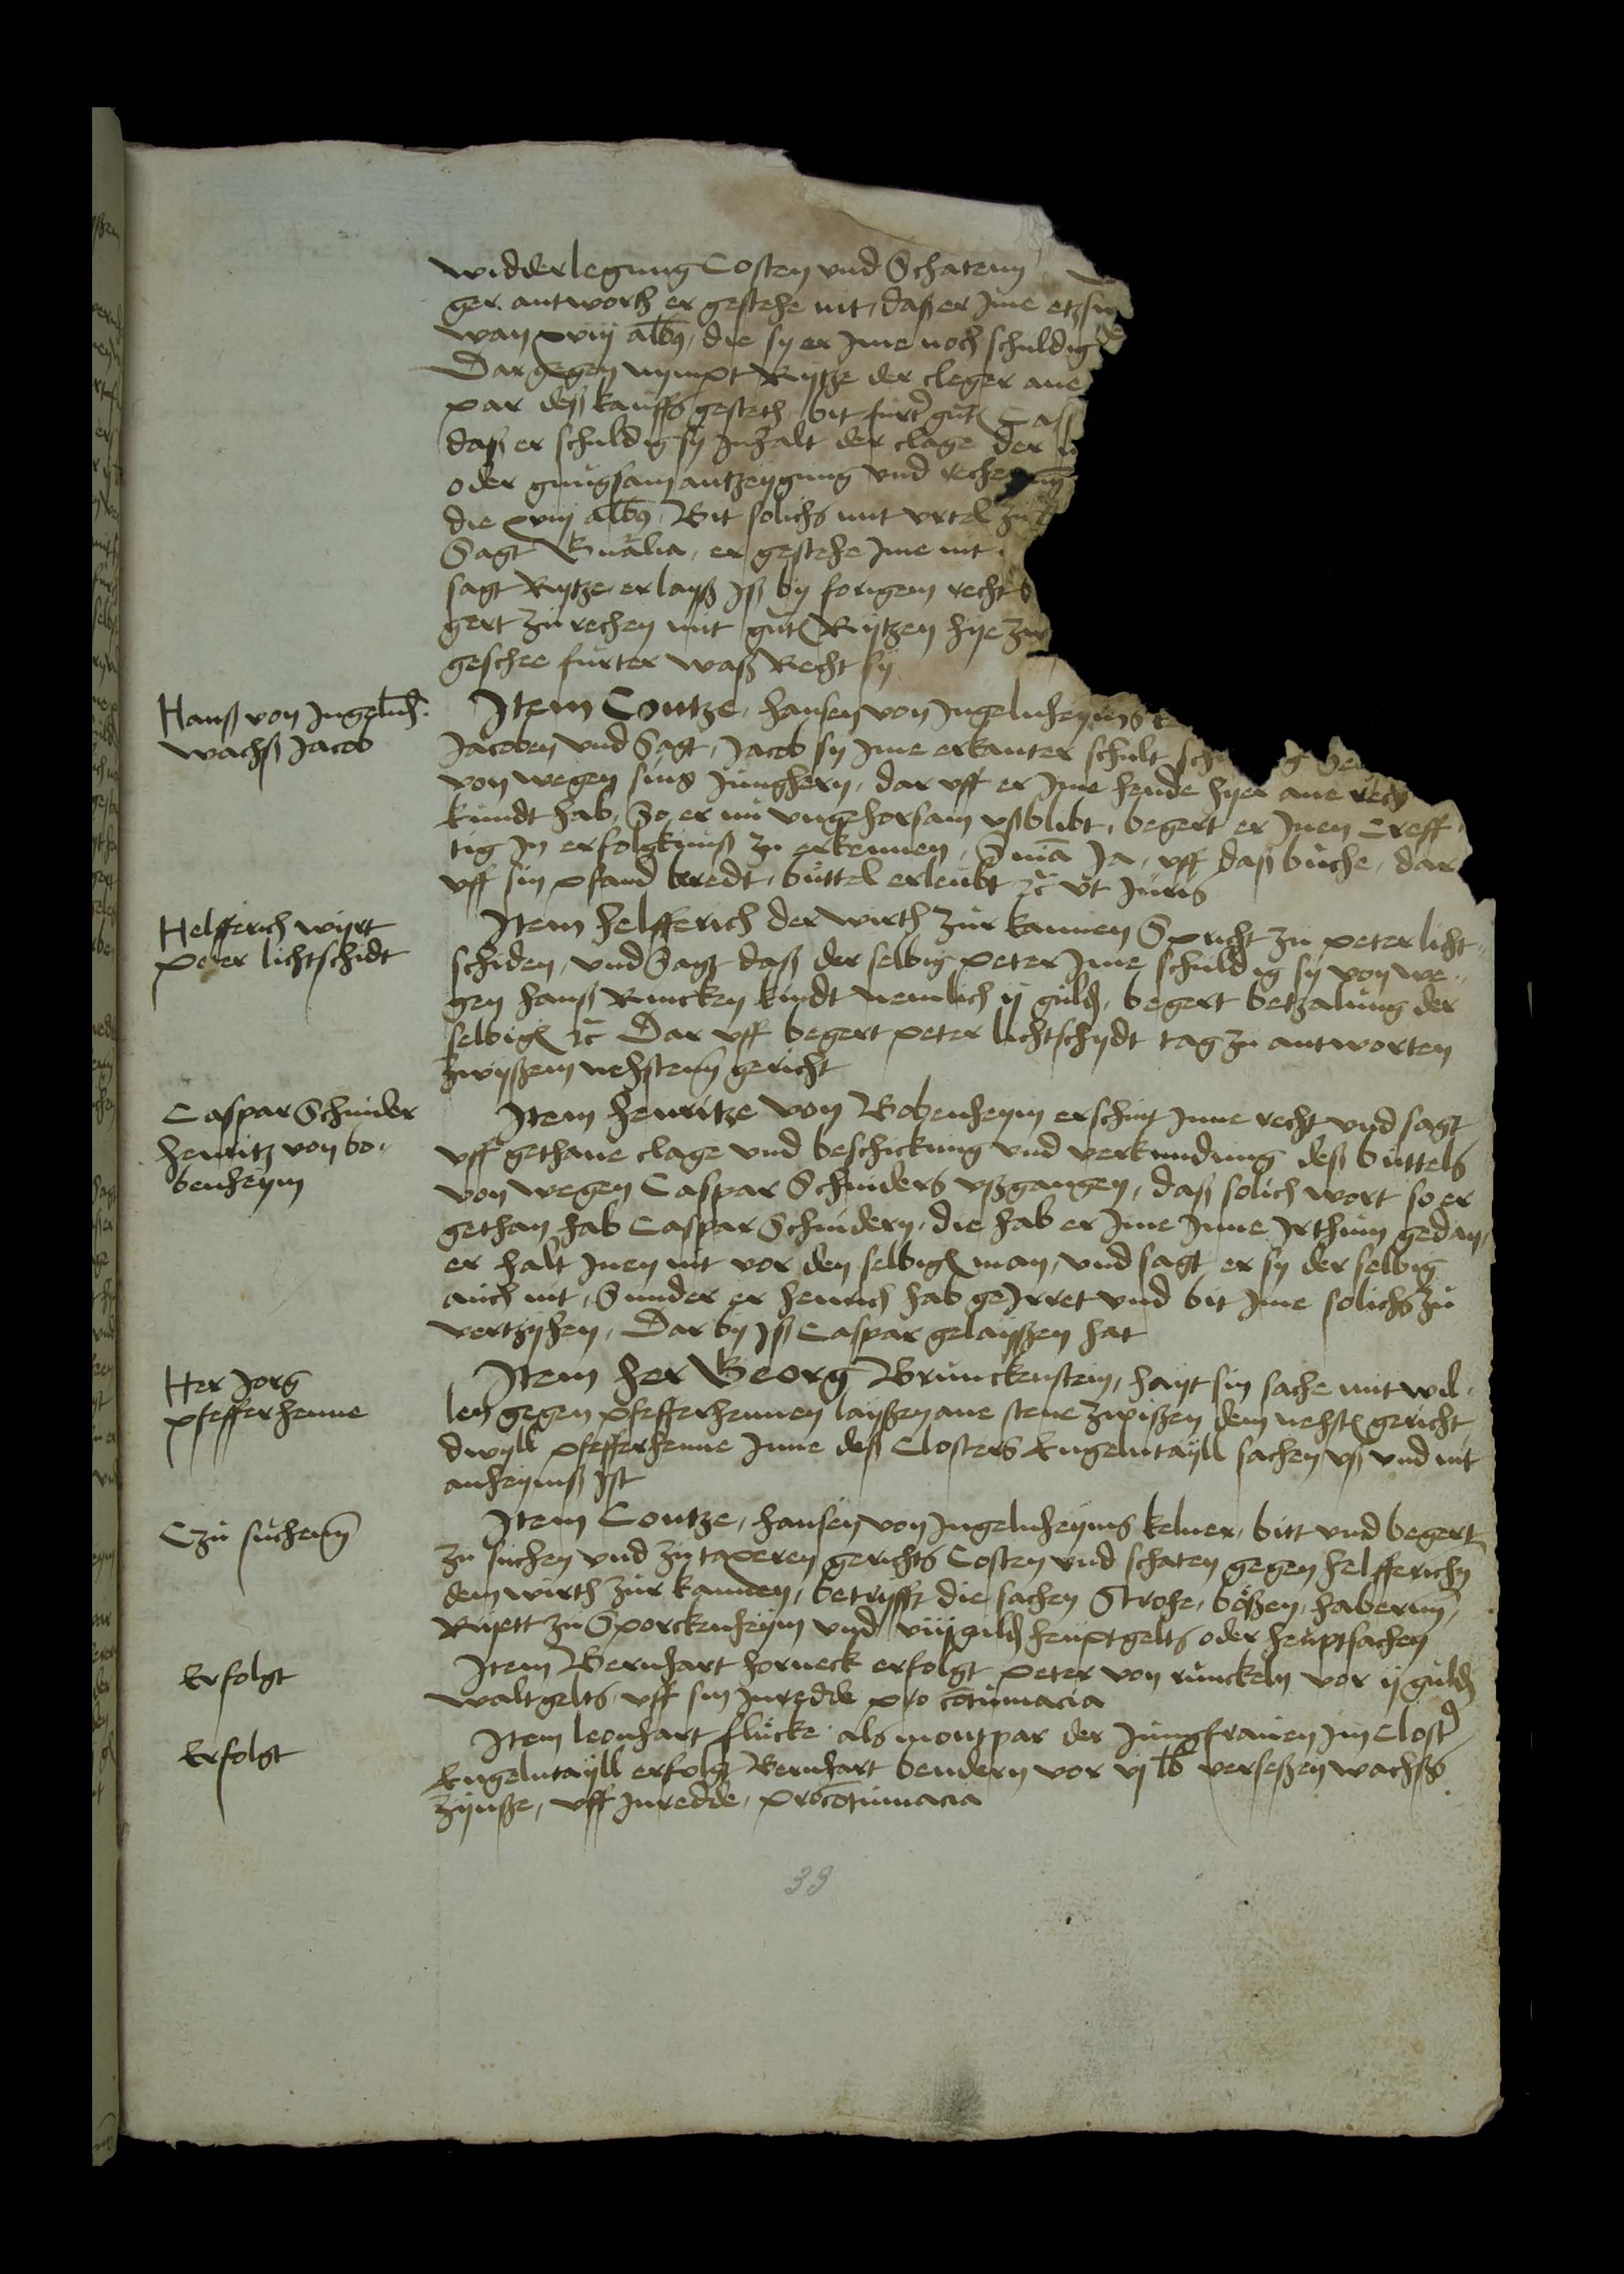 widderlegung Costen vnd Schatenn
ger. antworth er gestehe nit, daß er Jme
wan xviij alb9, die sy er Jme noch schuldig
Dar gegen nympt Rytze der cleger ane
par deß kauffs gesteth bit furt gut Casp
daß er schuldig sy Jnhalt der clage der
oder gnugsam antzeygung vnd rechenung
die xviij alb9, Bit solichs mit vrtel zu
Sagt Bualia, er gestehe Jme nit
sagt Rytze er layß Jß by forigem recht b
gert zu rechen mit gut Rytzen hye zu
geschee furter waß Recht sy
Hanß von Jngelnh.
wachß Jacob
Jtem Contze, hansen von Jngelnheyms
Jacoben vnd Sagt, Jacob sy Jme erkanter schult
von wegen sins Junghern, dar vff er Jme heude hyer ane
kundt hab, So er nu vngehorsam vßblibt, begert er Jnen Creff
tig Jn erfolgkniß zu erkennen, S nia Ja, vff daß buche, dar
vff sin pfand beredt, buttel erleubt rc vt Juris
Helfferich wyrt
peter lichtschidt
Jtem helfferich der wirth zur kannen Spricht zu peter licht
schiden, vnd Sagt daß der selbig peter Jme schuldig sy von we
gen hanß Runcken kindt nemlich ij guld, begert betzalung der
selbig rc Dar vff begert peter lichtschydt tag zu antworten
zwyßem nehstenn gericht
Caspar Schnider
henritz von bo
benheym
Jtem henritze von Bobenheym erschint Jnne recht vnd sagt
vff gethane clage vnd beschickung vnd verkundung deß buttels
von wegen Caspar Schniders vßgangen, daß solich wort so er
gethan hab Caspar Schnidern, die hab er Jme Jnne Jrthum gedan,
er halt Jnen nit vor den selbig man, vnd sagt er sy der selbig
auch nit, Sunder er henrich hab geJrret vnd bit Jme solichs zu
vertzyhen, Dar by Jß Caspar gelayßen hat
Her Jorg
pfefferhenne
Jtem her Georg Brunckenstein, hayt sin sache mit wil
len gegen pfefferhennen layßen ane stene zwißen dem nehst gericht
dwyll pfefferhenne Jnne deß Closters Engelntayll sachen vß vnd nit
anheymß Jst
Czu suchenn
Jtem Contze, hansen von Jngelnheyms kelner, bitt vnd begert
zu suchen vnd zu taxeren gerichts Costen vnd schaten gegen helfferichn
dem wirth zur kannen, betryfft die sachen Strohe, boßen, habernn
Rupett zu Sporckenheym vnd viij guld heuptgelts oder heuptsachen
Erfolgt
Jtem Bernhart horneck erfolgt peter von runckeln vor ij guld
waltgelts vff sin Jnredde pro cotumacia
Erfolgt
Jtem leonhart flucke als montpar der Jungfrauen Jm Clost
Engelntayll erfolgt Bernhart bendern vor vj lb verseßen wachsß
zynße, vff Jnredde, pro cotumacia
33